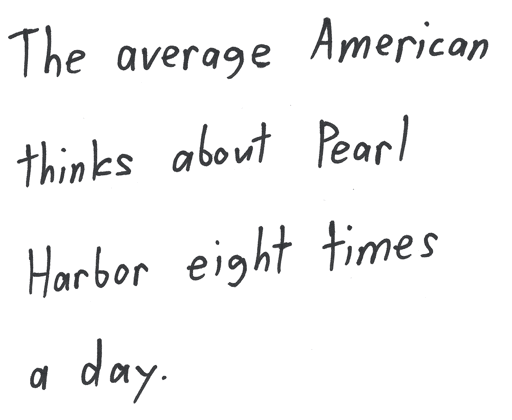 The average American
thinks about Pearl
Harbor eight times
a day.